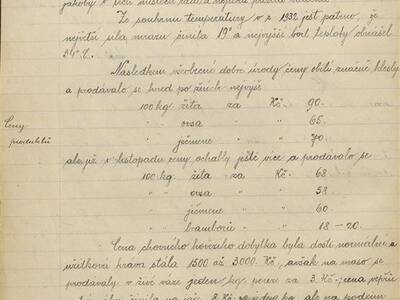 Ze souhrnu temperatury v r. 1932 jest patrno, že
největší síla mrazu činila 19° a nejvyšší bod teploty obnášel
34° C.
Následkem všeobecné dobré úrody ceny obilí značně klesly
a prodávalo se hned po žních nejvýš
100 kg žita za Kč. 90
" " ovsa " " 65
" " ječmene " " 70
Ceny
produktů
ale již v listopadu ceny ochably ještě více a prodávalo se
100 kg. žita za Kč. 68
" " ovsa " " 58
" " ječmene " " 60
" " bramborů " " 18 – 20.
Cena chovného hovězího dobytka byla dosti normální a
užitková kráva stála 1500 až 3.000 Kč, avšak na maso se
prodávaly v živé váze jeden kg. pouze za 3 Kč.; cena